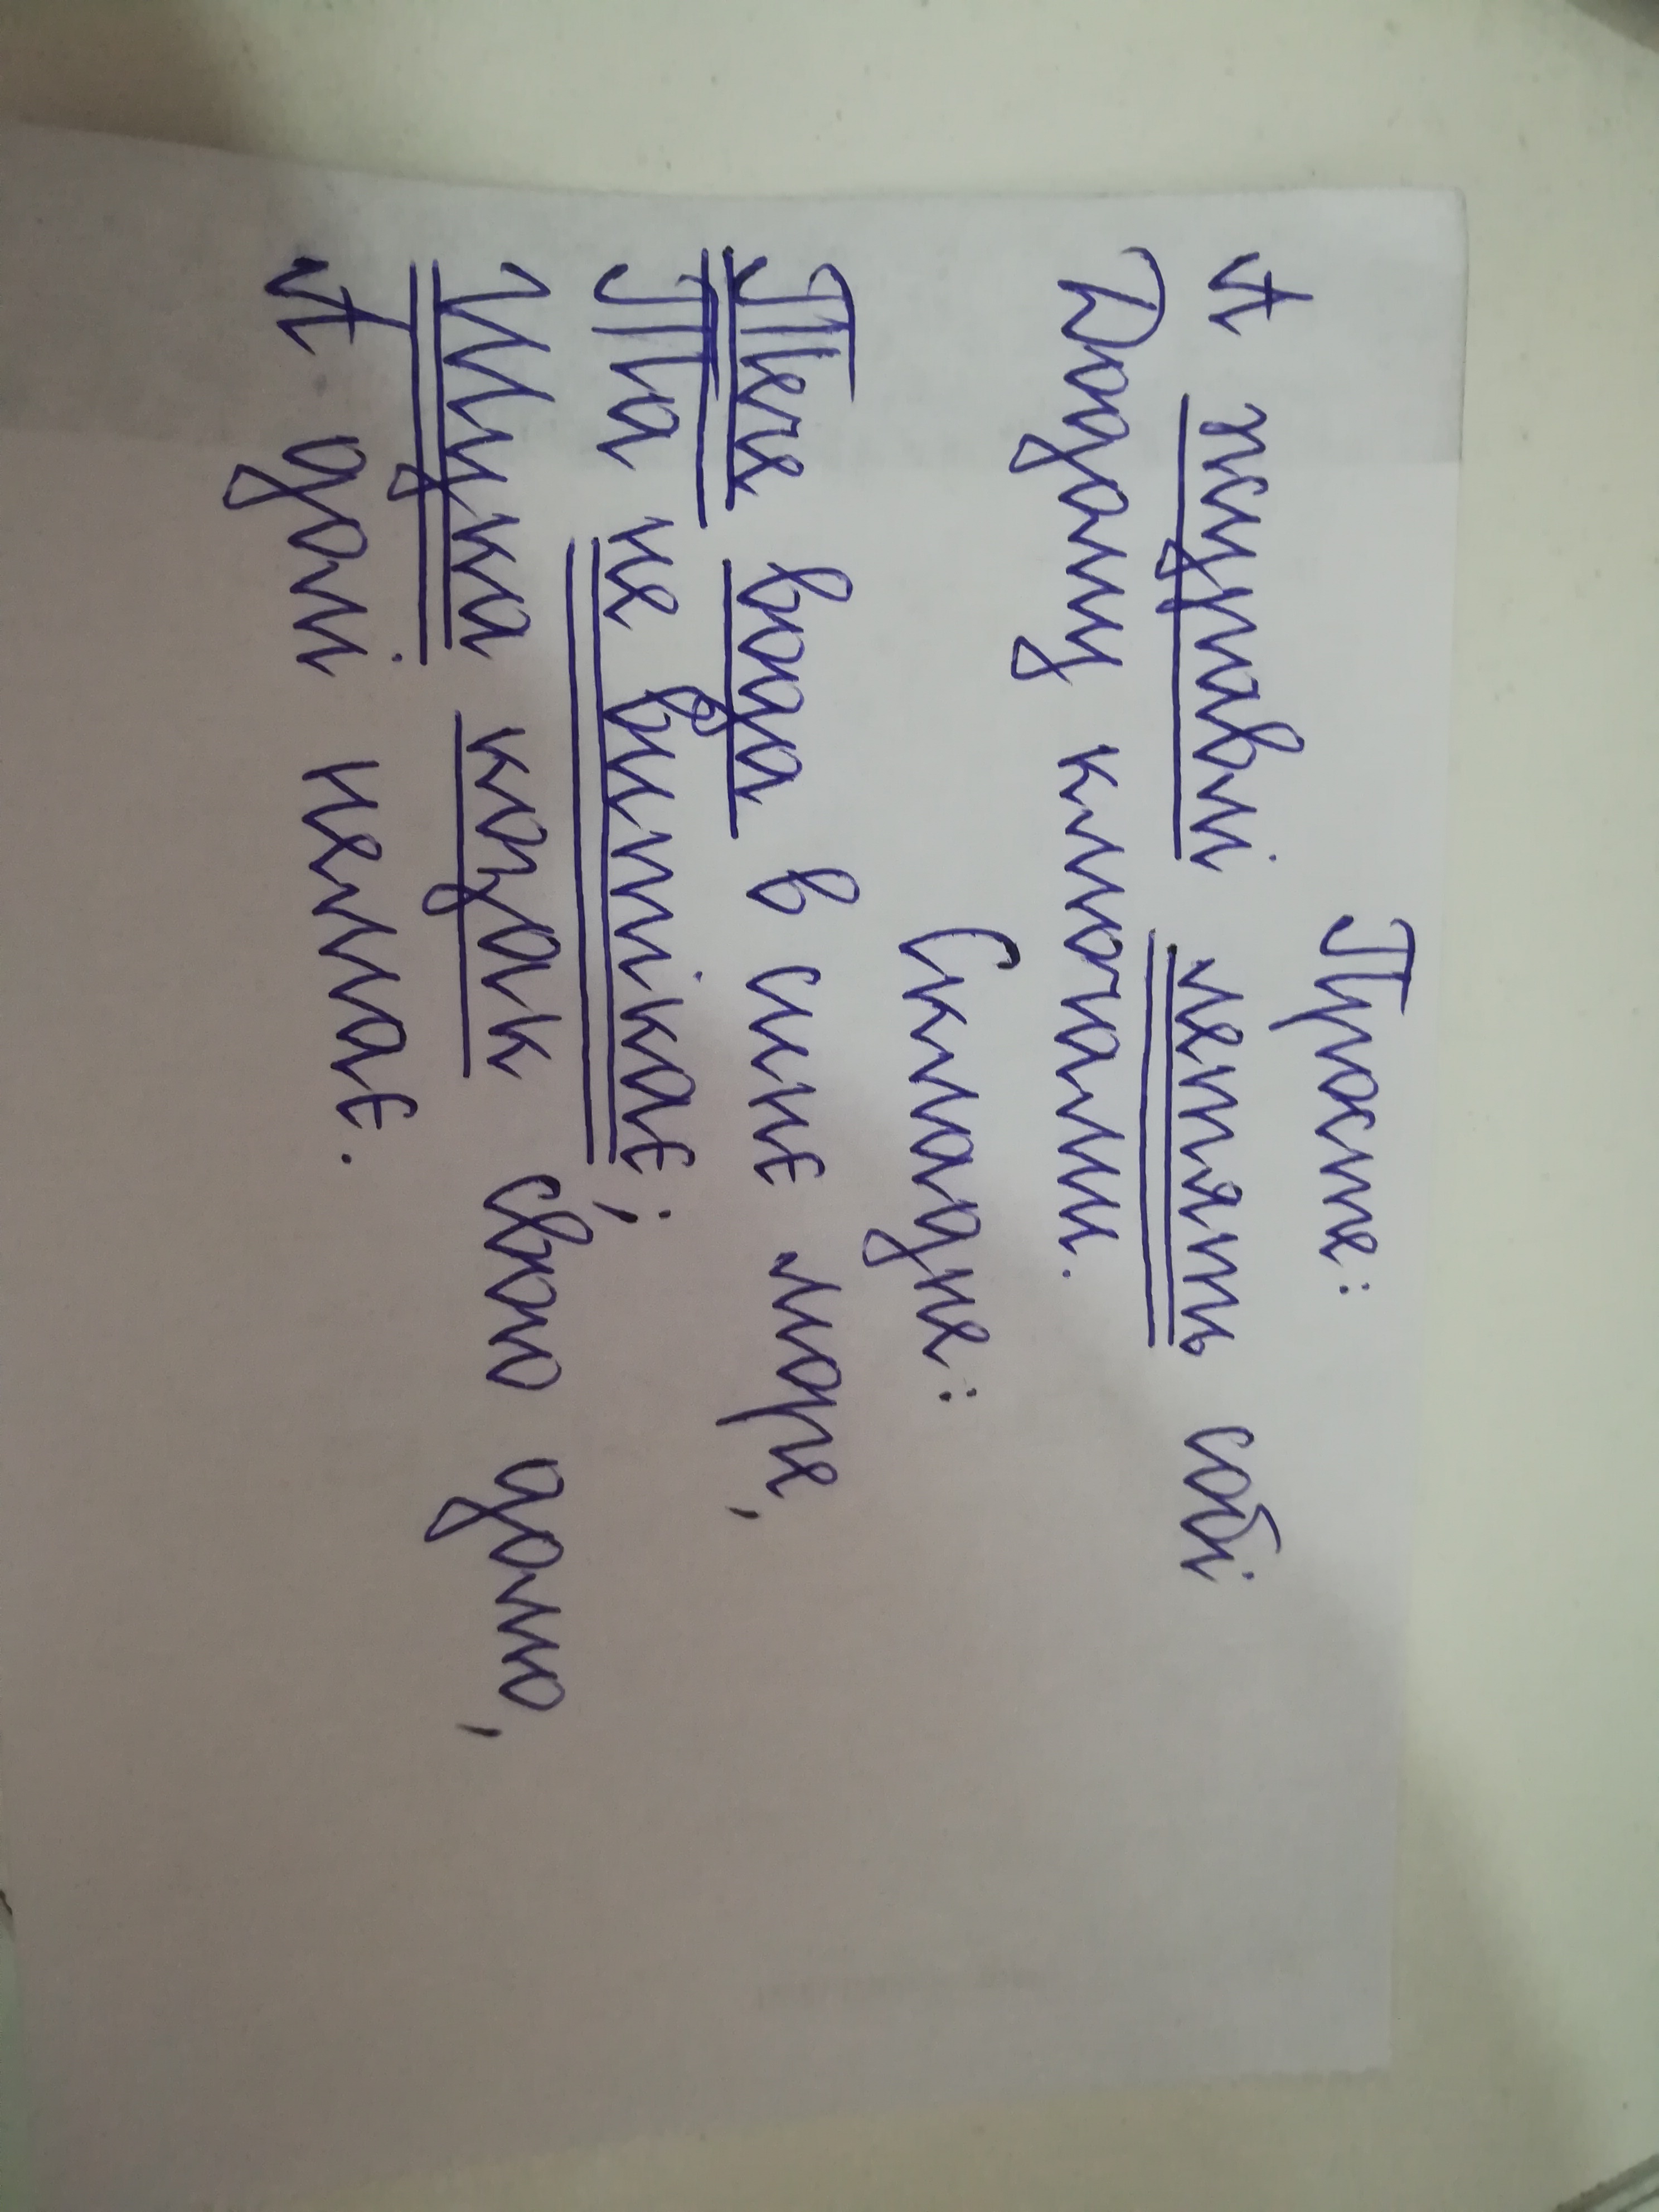 Просте:
А журавлі летять собі
Додому ключами.
Складне:
Тече вода в синє море,
Та не витікає;
Шука козак свою долю,
А долі немає.